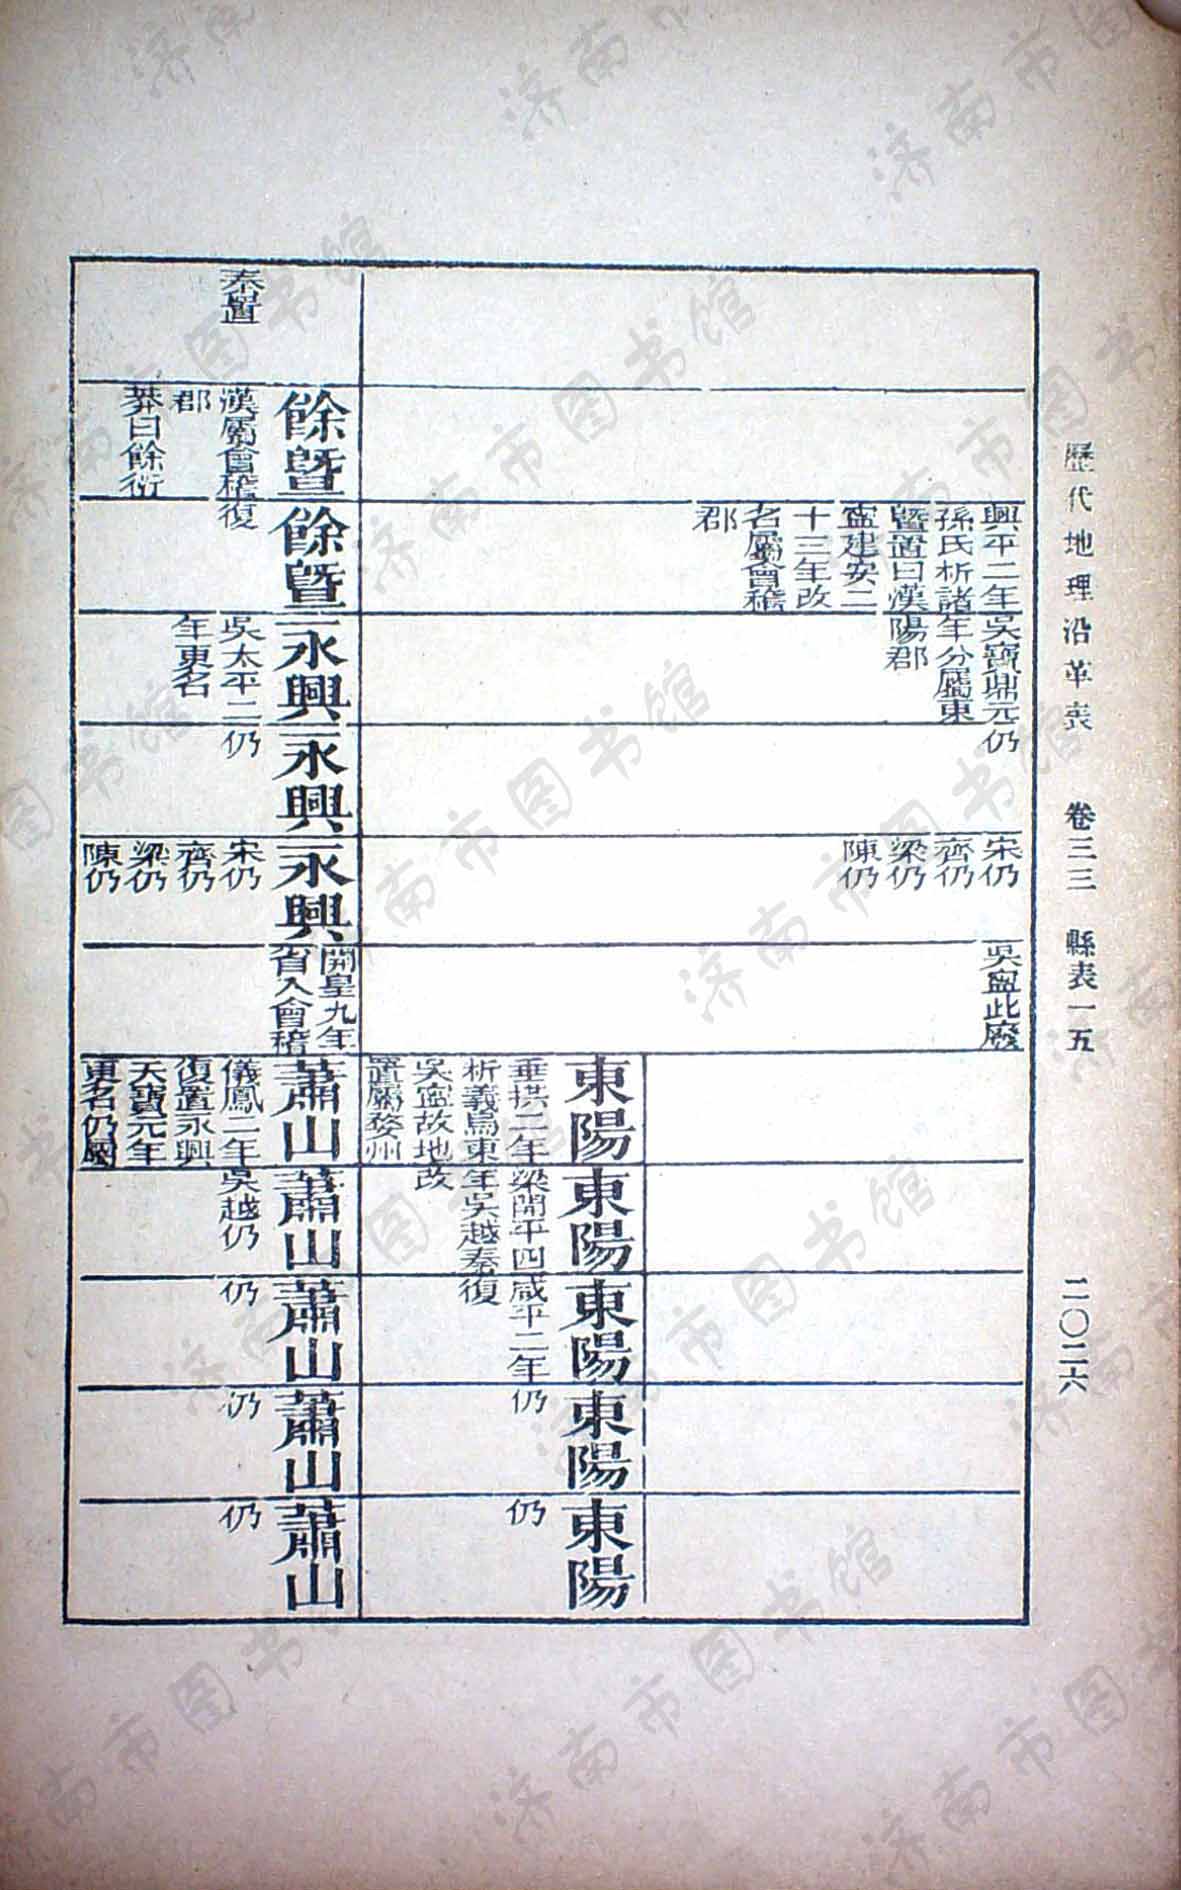 歷代地理沿革表　卷三三　縣表一五　二〇二六
興平二年
孫氏析諸
曁置曰漢
寍建安二
十三年改
名屬會稽
郡
吳寶鼎元
年分屬東
陽郡
仍
宋仍
齊仍
梁仍
陳仍
吳寍此廢
東陽
垂拱二年
析義烏東
吳寍故地
置屬婺州
東陽
梁開平四
年吳越奏
改
東陽
咸平二年
復
東陽
仍
東陽
仍
秦置
餘曁
漢屬會稽
郡
莽曰餘衍
餘曁
復
永興
吳太平二
年更名
永興
仍
永興
宋仍
齊仍
梁仍
陳仍
開皇九年
省入會稽
蕭山
儀鳳二年
復置永興
天寶元年
更名仍屬
蕭山
吳越仍
蕭山
仍
蕭山
仍
蕭山
仍
济南市图书馆